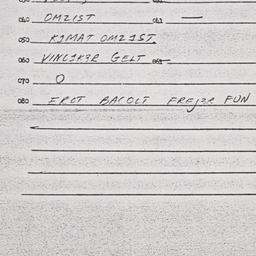 040 OMZIST 041 —
050 KJMAT OMZIST
060 VINCIK3R GELT
070 O
080 ERCT BACOLT FREJER FUN